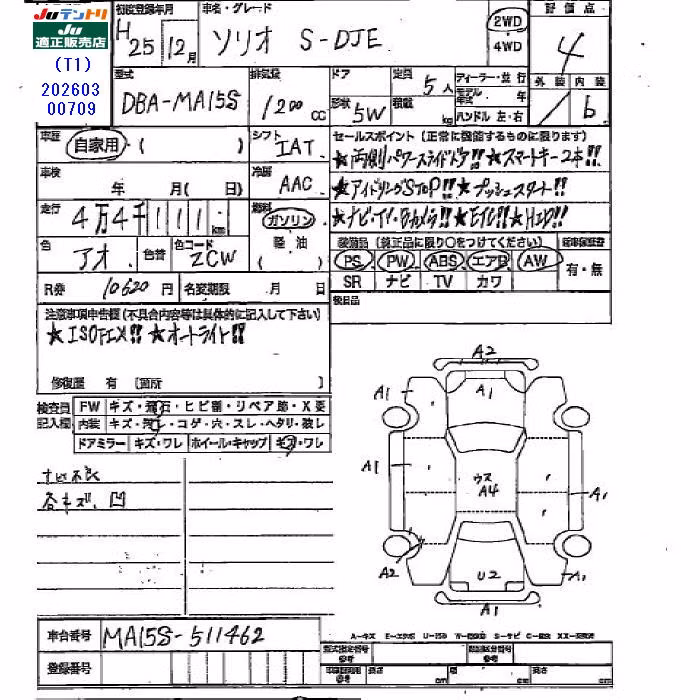 JUテントリ
JU
適正販売店
(T1)
202603
00709
初度登録年月
H 25 12月
車名・グレード
ソリオ S-DJE
2WD
4WD
評価点
4
外装 内装
/ b
型式
DBA-MA15S
排気量
1200 CC
ドア
形状 5W
定員 5人
積載 kg
ディーラー・並行
モデル年式 年
ハンドル 左・右
車歴
自家用・( )
シフト
IAT
車検
年 月( 日)
冷房
AAC
走行
4万4千111km
燃料
ガソリン
軽油
( )
色
アオ
色替
色コード
ZCW
R券 10620円
名変期限 月 日
セールスポイント (正常に機能するものに限ります)
★両側パワースライドドア!! ★スマートキー2本!!
★アイドリングSTOP!! ★プッシュスタート!!
★ナビ・TV・Bカメラ!! ★ETC!! ★HID!!
装備品 (純正品に限り○をつけてください)
PS PW ABS エアB AW
SR ナビ TV カワ
新車保証書
有・無
後日品
注意事項申告欄 (不具合内容等は具体的に記入して下さい)
★ISOFIX!! ★オートライト!!
修復歴 有 [箇所 ]
検査員
記入欄
FW キズ・飛石・ヒビ割・リペア跡・X要
内装 キズ・汚レ・コゲ・穴・スレ・ヘタリ・破レ
ドアミラー キズ・ワレ ホイール・キャップ キズ・ワレ
ナビ不良
各キズ、凹
A2
A1
A1
A1
ウス
A4
A1
A2
U2
A1
A1
A-キズ E-エクボ U-凹み W-補修跡 S-サビ C-腐食 XX-交換済
車台番号 MA15S-511462
登録番号
型式指定番号
参考
類別区分番号
参考
車両寸法
参考
長さ cm
幅 cm
高さ cm